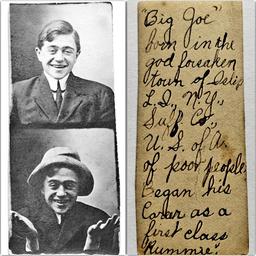 "Big Joe"
born in the
god forsaken
town of Islip
L.I., N.Y.,
Suff Co.,
U.S. of A.
of poor people
Began his
Career as a
first class
Rummie.